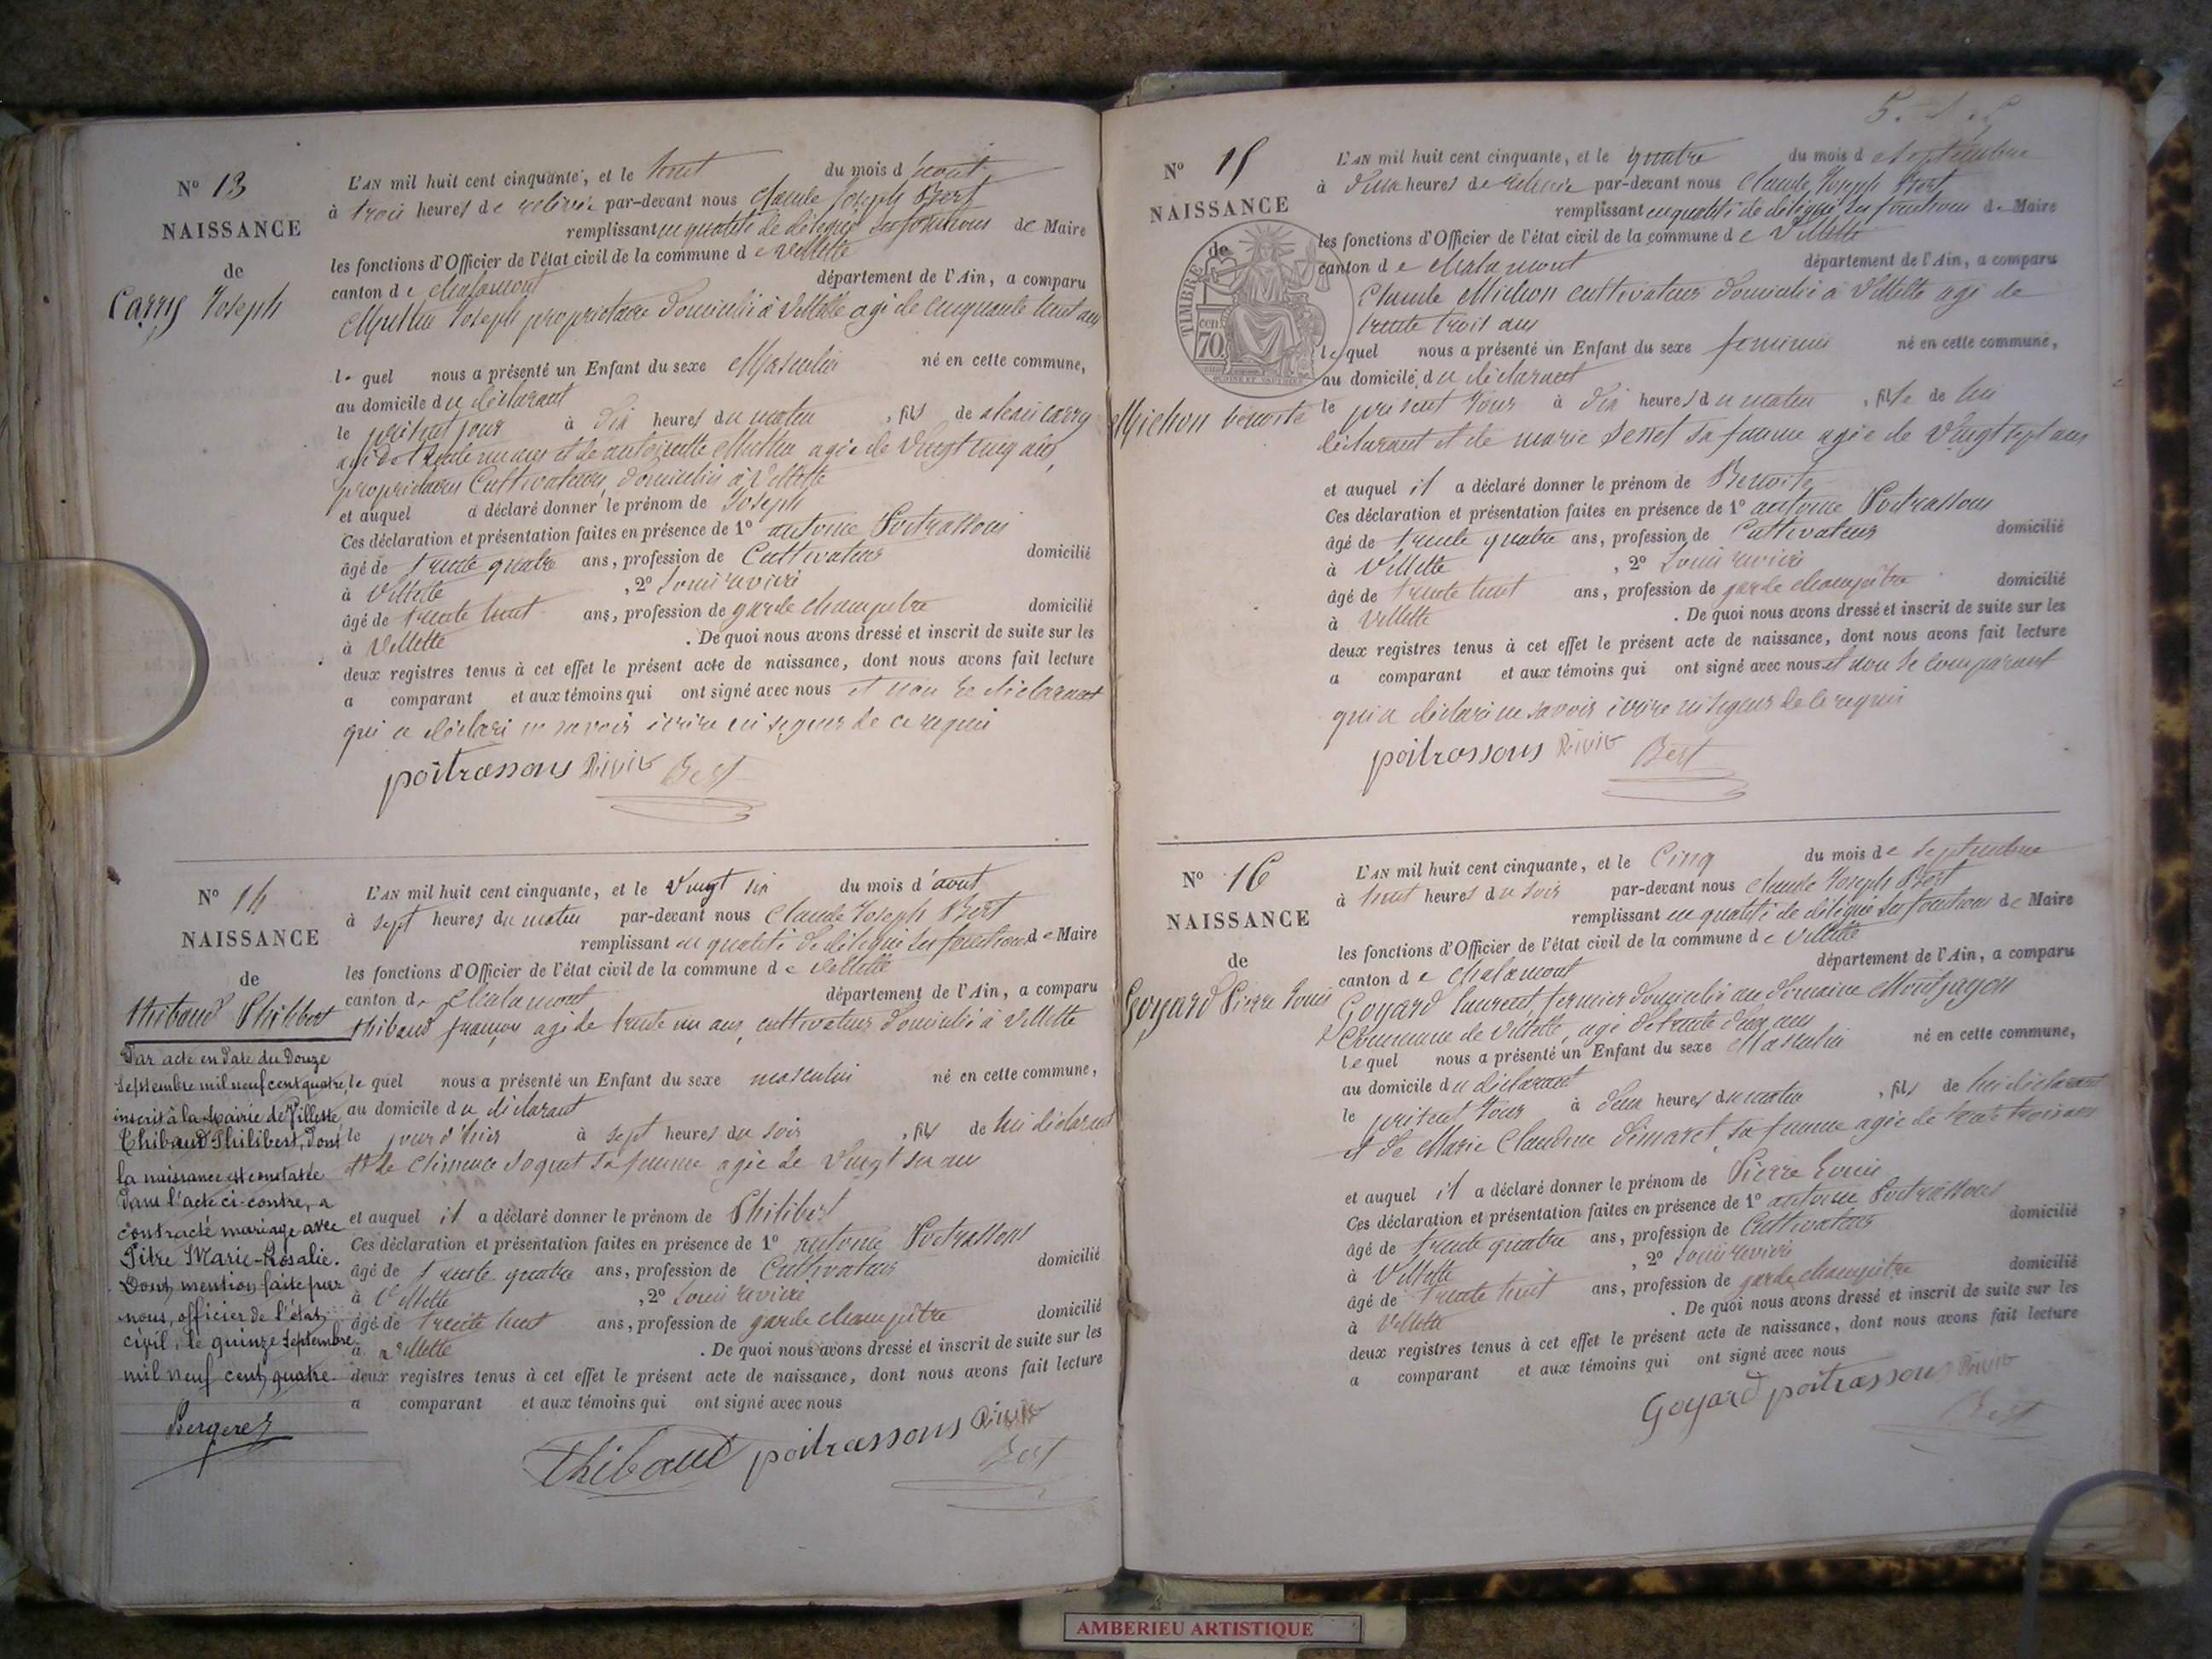 N° 13
NAISSANCE
de
Carry Joseph
L'AN mil huit cent cinquante, et le huit du mois d'aout
à trois heures de relevée par-devant nous Claude Joseph Bert
remplissant en qualité de délégué les fonctions de Maire
les fonctions d'Officier de l'état civil de la commune de Villette
canton de Chalamont département de l'Ain, a comparu
Joseph propriétaire domicilié à Villette agé de cinquante huit ans
lequel nous a présenté un Enfant du sexe Masculin né en cette commune,
au domicile du déclarant
le présent jour à dix heures du matin, fils de Jean Carry
agé de trente un ans et de antoinette agée de vingt cinq ans,
propriétaires Cultivateurs, domiciliés à Villette
et auquel a déclaré donner le prénom de Joseph
Ces déclaration et présentation faites en présence de 1° antoine Poitrassons
âgé de trente quatre ans, profession de Cultivateur domicilié
à Villette, 2° Louis rivière
âgé de trente huit ans, profession de garde champêtre domicilié
à Villette. De quoi nous avons dressé et inscrit de suite sur les
deux registres tenus à cet effet le présent acte de naissance, dont nous avons fait lecture
a comparant et aux témoins qui ont signé avec nous et non le déclarant
qui a déclaré ne savoir écrire ni signer de ce requis
poitrassons Rivière Bert
N° 14
NAISSANCE
de
thibaud Philibert
Par acte en date du Douze
Septembre mil neuf cent quatre,
inscrit à la Mairie de Villette,
Thibaud Philibert, dont
la naissance est constatée
dans l'acte ci-contre, a
contracté mariage avec
Pitre Marie-Rosalie.
Dont mention faite par
nous, officier de l'état
civil, le quinze Septembre
mil neuf cent quatre.
Bergerez
L'AN mil huit cent cinquante, et le Vingt six du mois d'aout
à sept heures du matin par-devant nous Claude Joseph Bert
remplissant en qualité de délégué les fonctions de Maire
les fonctions d'Officier de l'état civil de la commune de Villette
canton de Chalamont département de l'Ain, a comparu
thibaud françois agé de trente un ans, cultivateur domicilié à Villette
lequel nous a présenté un Enfant du sexe masculin né en cette commune,
au domicile du déclarant
le jour d'hier à sept heures du soir, fils de lui déclarant
et de Clémence sa femme agée de vingt six ans
et auquel il a déclaré donner le prénom de Philibert
Ces déclaration et présentation faites en présence de 1° antoine Poitrassons
âgé de trente quatre ans, profession de Cultivateur domicilié
à Villette, 2° Louis rivière
âgé de trente huit ans, profession de garde champêtre domicilié
à Villette. De quoi nous avons dressé et inscrit de suite sur les
deux registres tenus à cet effet le présent acte de naissance, dont nous avons fait lecture
a comparant et aux témoins qui ont signé avec nous
Thibaud poitrassons Rivière
Bert
N° 15
NAISSANCE
de
TIMBRE
70 cen.
Michon benoite
L'AN mil huit cent cinquante, et le quatre du mois d Septembre
à deux heures de relevée par-devant nous Claude Joseph Bert
remplissant en qualité de délégué les fonctions de Maire
les fonctions d'Officier de l'état civil de la commune de Villette
canton de Chalamont département de l'Ain, a comparu
Claude Michon cultivateur domicilié à Villette agé de
trente trois ans
lequel nous a présenté un Enfant du sexe feminin né en cette commune,
au domicile du déclarant
le présent jour à dix heures du matin, fille de lui
déclarant et de marie sa femme agée de vingt sept ans
et auquel il a déclaré donner le prénom de Benoite
Ces déclaration et présentation faites en présence de 1° antoine Poitrassons
âgé de trente quatre ans, profession de Cultivateur domicilié
à Villette, 2° Louis rivière
âgé de trente huit ans, profession de garde champêtre domicilié
à Villette. De quoi nous avons dressé et inscrit de suite sur les
deux registres tenus à cet effet le présent acte de naissance, dont nous avons fait lecture
a comparant et aux témoins qui ont signé avec nous et non le comparant
qui a déclaré ne savoir écrire ni signer de ce requis
poitrassons Rivière Bert
N° 16
NAISSANCE
de
Goyard Pierre Louis
L'AN mil huit cent cinquante, et le Cinq du mois de Septembre
à huit heures du soir par-devant nous Claude Joseph Bert
remplissant en qualité de délégué les fonctions de Maire
les fonctions d'Officier de l'état civil de la commune de Villette
canton de Chalamont département de l'Ain, a comparu
Goyard laurent, fermier domicilié au domaine
Commune de Villette, agé de trente deux ans
lequel nous a présenté un Enfant du sexe Masculin né en cette commune,
au domicile du déclarant
le présent jour à deux heures du matin, fils de lui déclarant
et de Marie Claudine sa femme agée de trente trois ans
et auquel il a déclaré donner le prénom de Pierre Louis
Ces déclaration et présentation faites en présence de 1° antoine Poitrassons
âgé de trente quatre ans, profession de Cultivateur domicilié
à Villette, 2° Louis rivière
âgé de trente huit ans, profession de garde champêtre domicilié
à Villette. De quoi nous avons dressé et inscrit de suite sur les
deux registres tenus à cet effet le présent acte de naissance, dont nous avons fait lecture
a comparant et aux témoins qui ont signé avec nous
Goyard poitrassons Rivière
Bert
AMBERIEU ARTISTIQUE